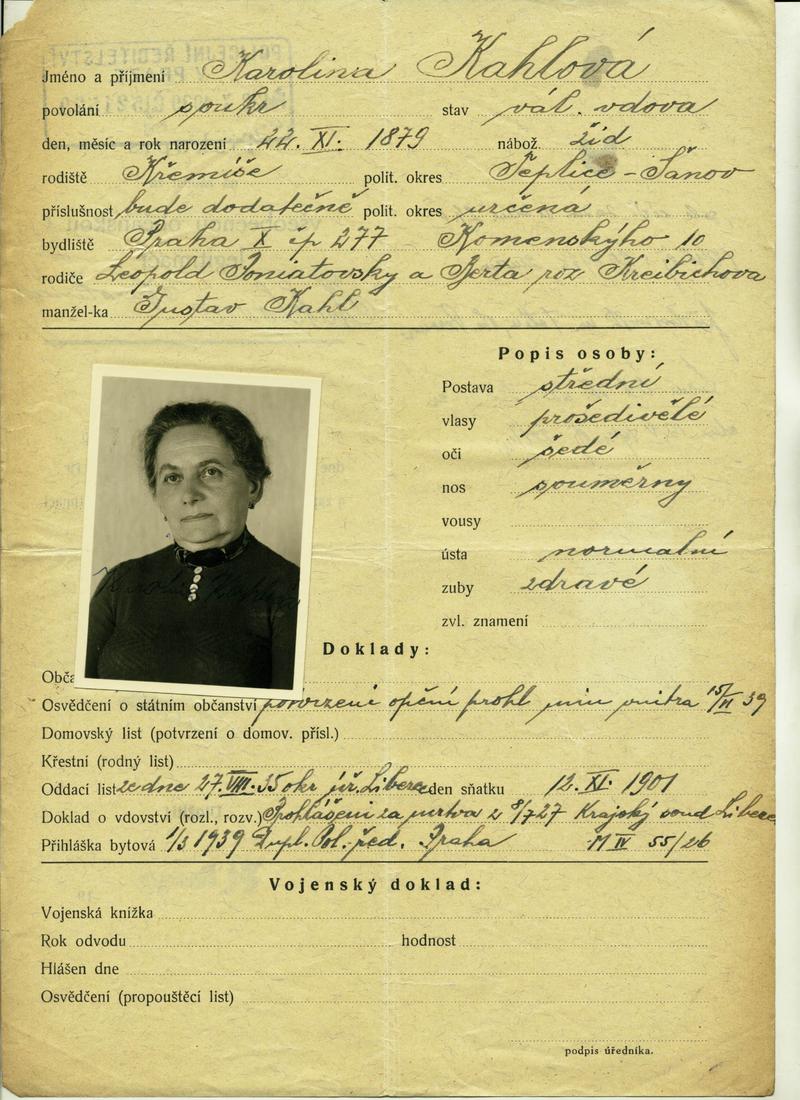 Jméno a příjmení Karolina Kahlová
povolání soukr stav vál. vdova
den, měsíc a rok narození 22. XI. 1879 nábož. žid
rodiště Křemíše polit. okres Teplice - Šanov
příslušnost bude dodatečně polit. okres určená
bydliště Praha X čp 277 Komenskýho 10
rodiče Leopold Poniatovsky a Berta roz Kreibichova
manžel-ka Gustav Kahl
Popis osoby:
Postava střední
vlasy prošedivělé
oči šedé
nos souměrny
vousy
ústa normalní
zuby zdravé
zvl. znamení
Doklady:
Obča
Osvědčení o státním občanství potvrzení opční prohl min vnitra 15/II 39
Domovský list (potvrzení o domov. přísl.)
Křestní (rodný list)
Oddací list ze dne 27. VIII. 35 okr úř. Liberec den sňatku 12. XI. 1901
Doklad o vdovství (rozl., rozv.) Prohlášení za mrtva z 8/7 27 Krajský soud Liberec
Přihláška bytová 1/3 1939 Dupl. Pol. řed. Praha IV 55/26
Vojenský doklad:
Vojenská knížka
Rok odvodu hodnost
Hlášen dne
Osvědčení (propouštěcí list)
podpis úředníka.